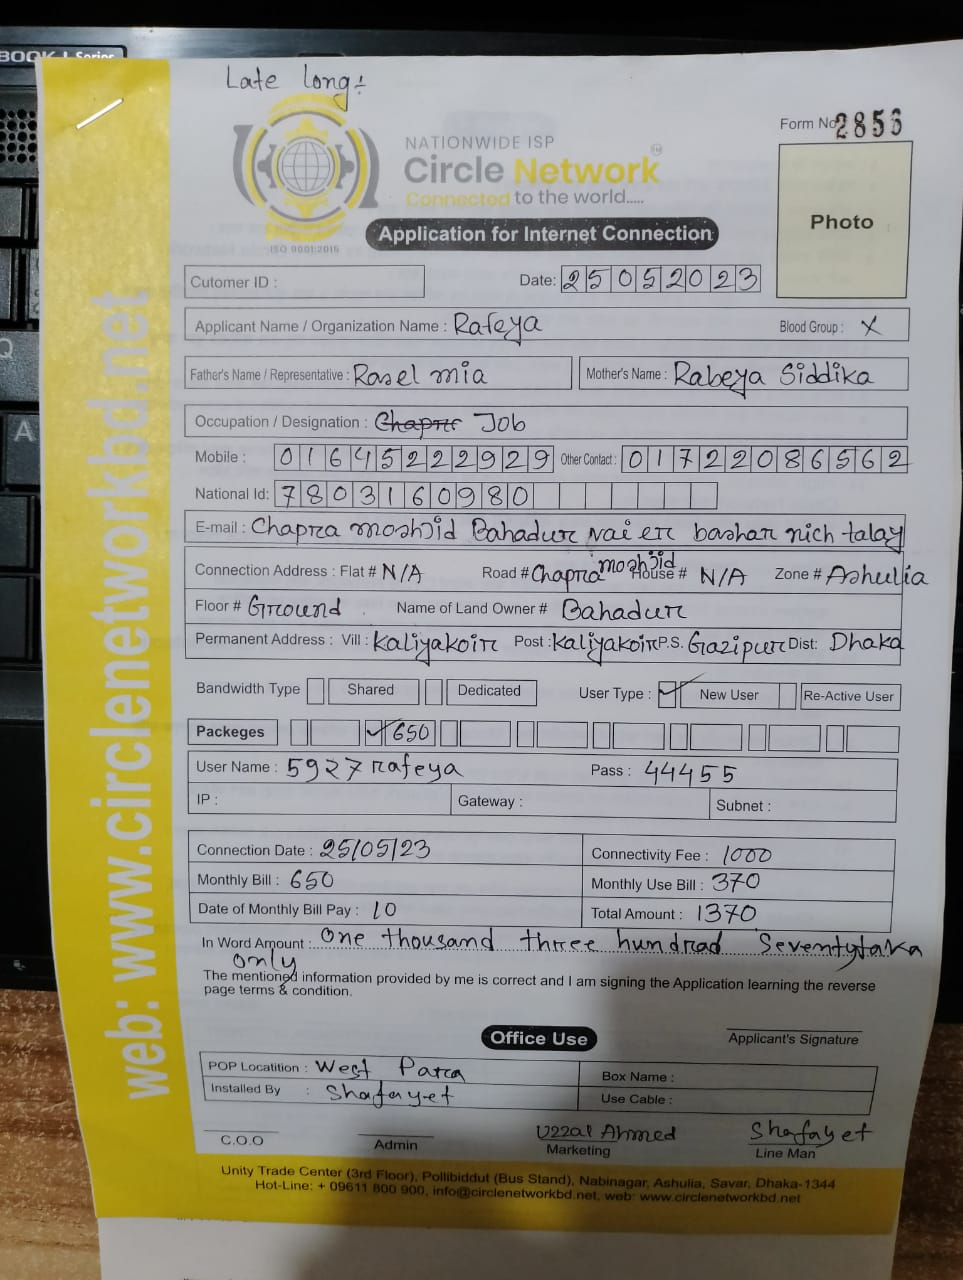 BOOK I Series
Late long:-
Form No 2856
NATIONWIDE ISP
Circle Network TM
Connected to the world.....
ISO 9001:2015
Application for Internet Connection
Photo
Cutomer ID :
Date: 25052023
Applicant Name / Organization Name : Rafeya Blood Group : X
Father's Name / Representative : Rasel mia Mother's Name : Rabeya Siddika
Occupation / Designation : Job
Mobile : 01645222929 Other Contact : 01722086562
National Id: 7803160980
E-mail : Chapra moshjid Bahadur vai er bashar nich talay
Connection Address : Flat # N/A Road # Chapra moshjid House # N/A Zone # Ashulia
Floor # Ground Name of Land Owner # Bahadur
Permanent Address : Vill : Kaliyakoir Post : Kaliyakoir P.S. Gazipur Dist: Dhaka
Bandwidth Type Shared Dedicated User Type : ✓ New User Re-Active User
Packeges ✓ 650
User Name : 5927rafeya Pass : 44455
IP : Gateway : Subnet :
Connection Date : 25/05/23 Connectivity Fee : 1000
Monthly Bill : 650 Monthly Use Bill : 370
Date of Monthly Bill Pay : 10 Total Amount : 1370
In Word Amount : One thousand three hundrad Seventytaka
only
The mentioned information provided by me is correct and I am signing the Application learning the reverse
page terms & condition.
Office Use
Applicant's Signature
POP Locatition : West Para Box Name :
Installed By : Shafayet Use Cable :
Uzzal Ahmed Shafayet
C.O.O Admin Marketing Line Man
Unity Trade Center (3rd Floor), Pollibiddut (Bus Stand), Nabinagar, Ashulia, Savar, Dhaka-1344
Hot-Line: + 09611 800 900, info@circlenetworkbd.net, web: www.circlenetworkbd.net
web: www.circlenetworkbd.net
Q
A